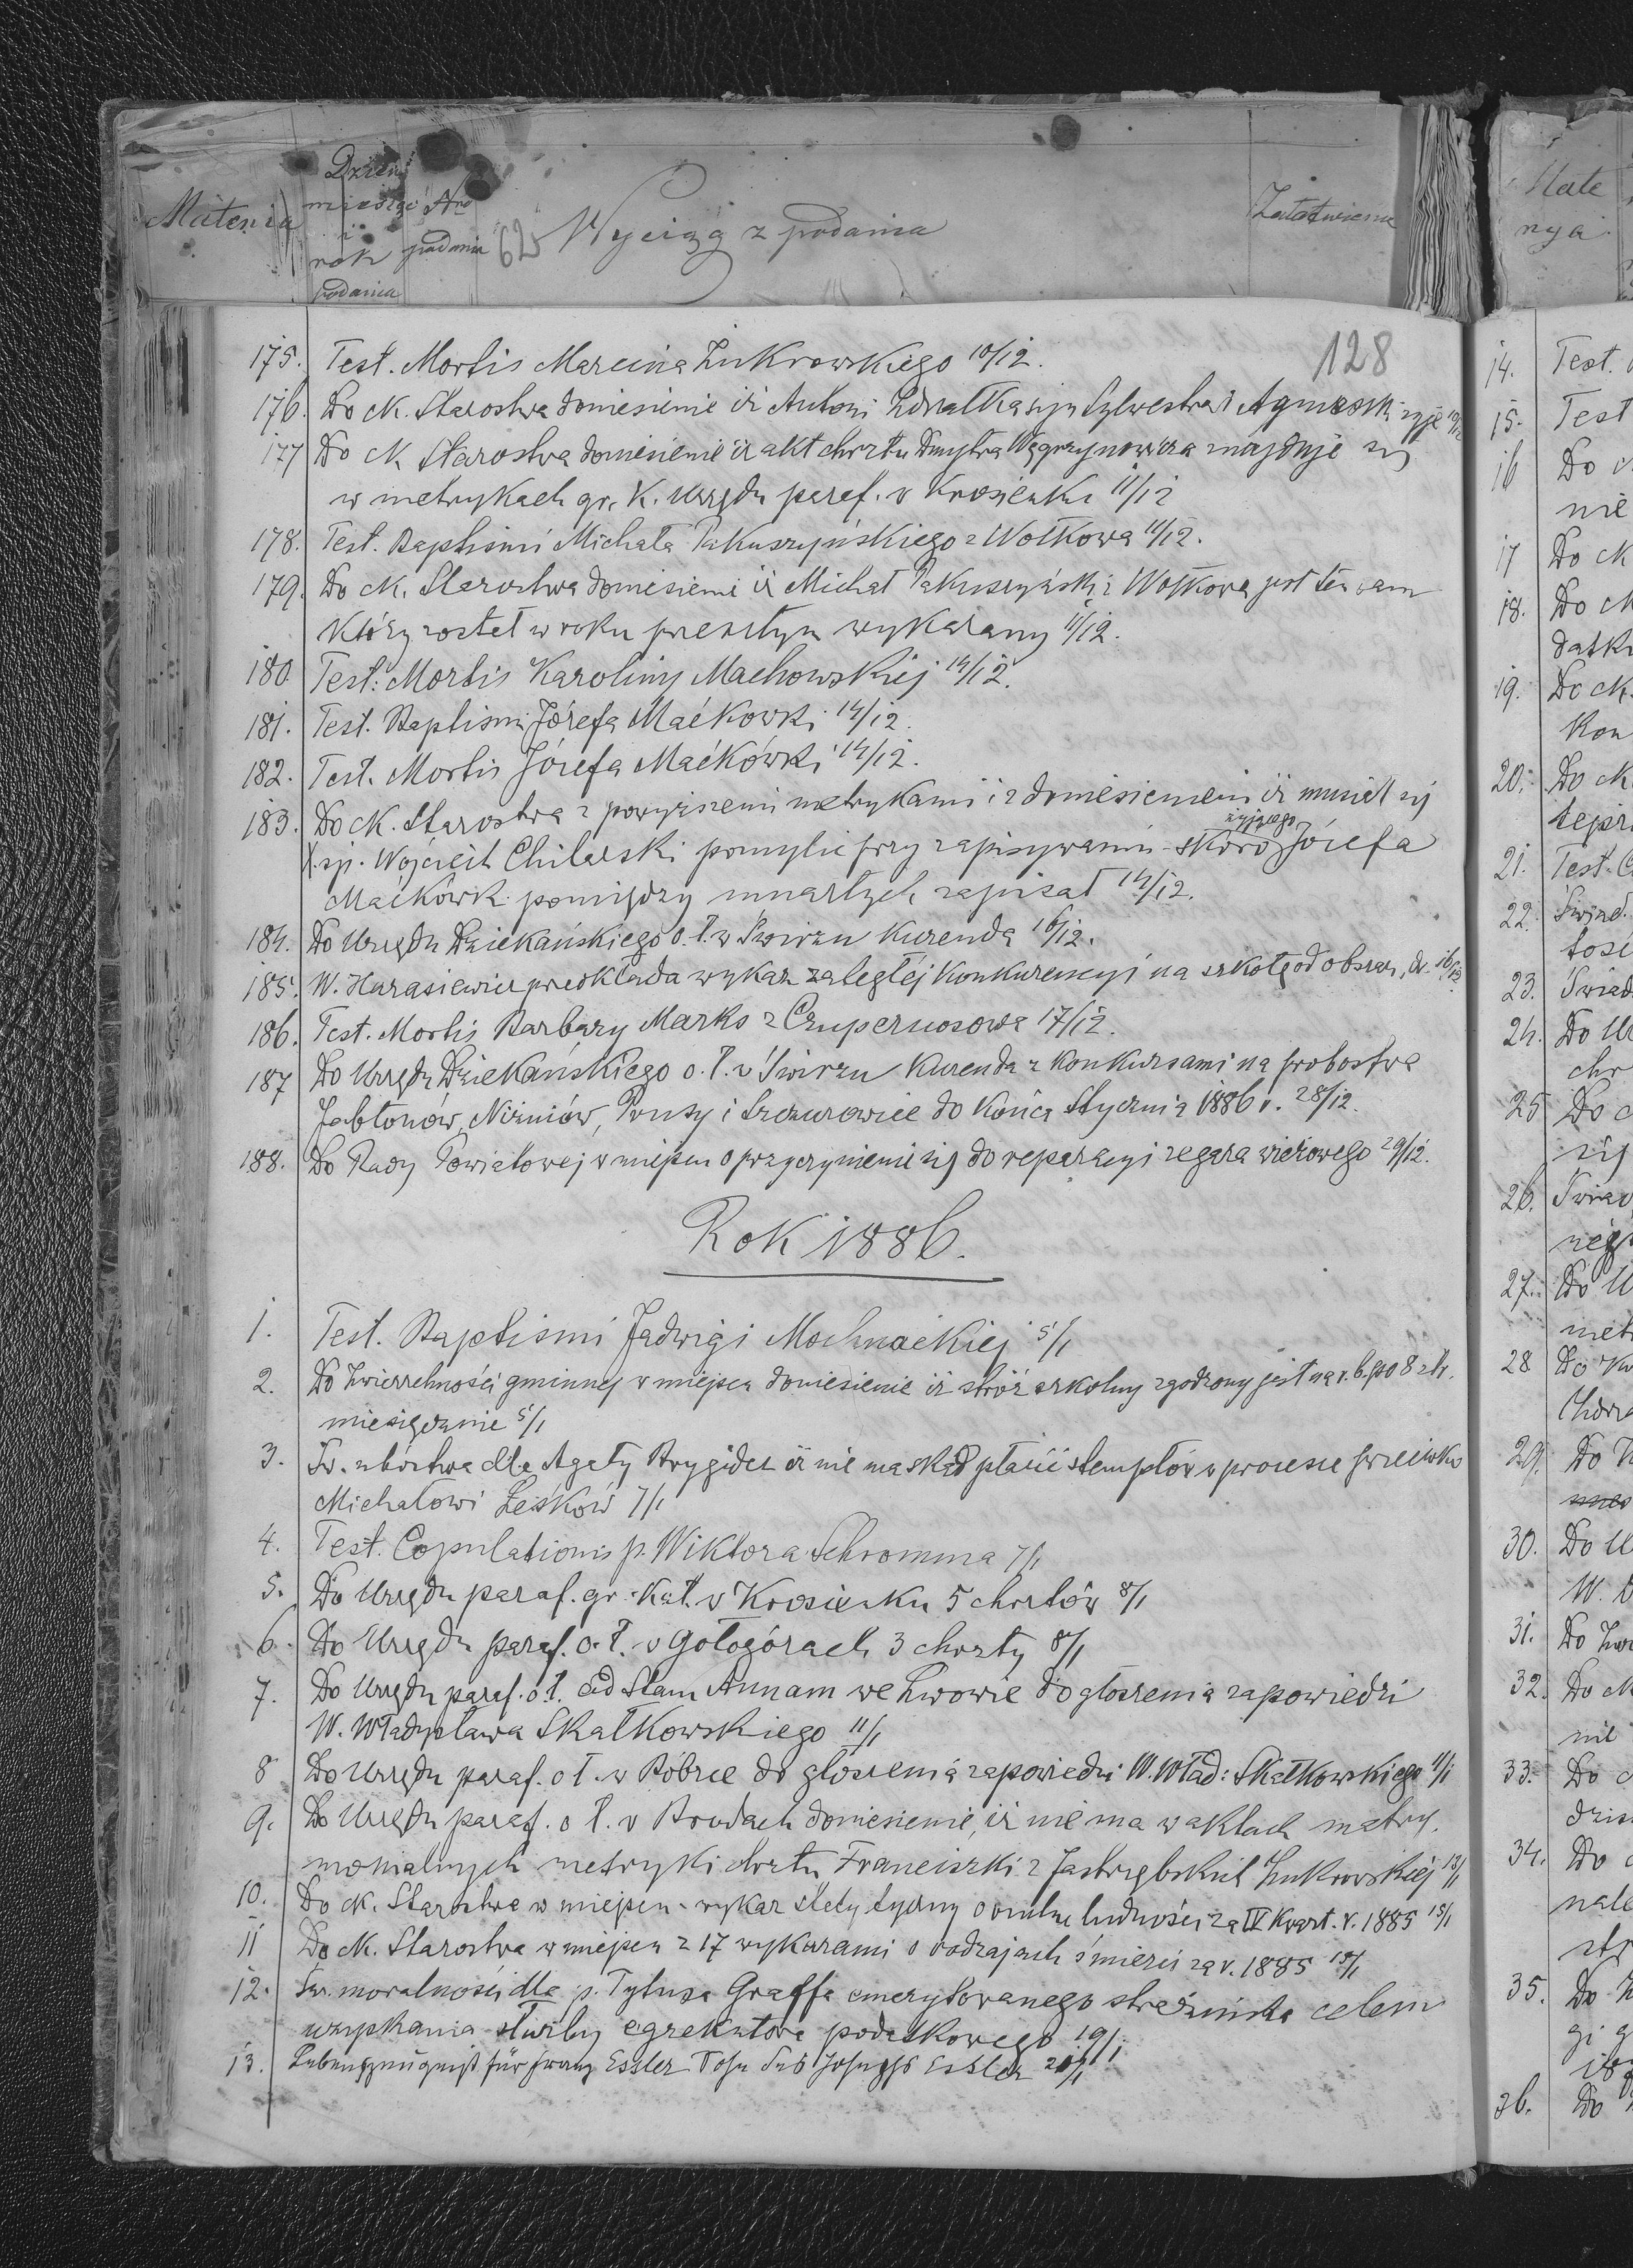 Materia
Dzień
miesiąc
i
rok
podania
Nro
podania
62
Wyciąg z podania
Załatwienie
Mate
rya
128
175. Test. Mortis Marcina Żukrowskiego 10/12.
176. Do ck. Starostwa doniesienie iż Antoni syn Sylwestra i Agnieszki żyje
177 Do ck. Starostwa doniesienie iż akt chrztu Dmytra Węgrzynowicza znajduje się
w metrykach gr. k. Urzędu paraf. w Krosienku 11/12
178. Test. Baptismi Michała Pakuszyńskiego z Wołkowa 11/12.
179. Do ck. Starostwa doniesieni iż Michał Pakuszyński z Wołkowa jest ten sam
który został w roku wykazany 11/12.
180 Test. Mortis Karoliny Machowskiej 14/12.
181. Test. Baptismi Józefa Maćkówki 14/12.
182. Test. Mortis Józefa Maćkówki 14/12.
183. Do ck. Starostwa z powyższemi metrykami i z doniesieniem iż musiał się
żyjącego
X. śp. Wojciech Chilarski pomylić przy zapisywaniu skoro Józefa
Maćkówk pomiędzy umarłych zapisał 14/12.
184. Do Urzędu Dziekańskiego o. ł. w Świrzu Kurenda 16/12.
185. W. Harasiewicz przedkłada wykaz zaległej konkurencyi na szkołę od obszar. dw. 16/12
186. Test. Mortis Barbary Marks z Czupernosowa 17/12.
187 Do Urzędu Dziekańskiego o. ł. w Świrzu Kurenda z konkursami na probostwa
Jabłonów, Niżniów, Prusy i Szczurowice do końca Stycznia 1886 r. 28/12.
188. Do Rady Powiatowej w miejscu o przyczynienie się do reparacyi zegara wieżowego 29/12.
Rok 1886.
1. Test. Baptismi Jadwigi Mochnackiej 5/1
2. Do Zwierzchności gminnej w miejscu doniesienie iż stróż szkolny zgodzony jest na r. b. po 8 złr.
miesięcznie 5/1
3. Św. ubóstwa dla Agaty Brygider iż nie ma skąd płacić stemplów w procesie przeciwko
Michałowi Leśków 7/1
4. Test. Copulationis p. Wiktora Schromma 7/1
5. Do Urzędu paraf. gr. kat. w Krosienku 5 chrztów 8/1
6. Do Urzędu paraf. o. ł. w Gołogórach 3 chrzty 8/1
7. Do Urzędu paraf. o. ł. ad Stam Annam we Lwowie do głoszenia zapowiedzi
W. Władysława Skałkowskiego 11/1
8 Do Urzędu paraf. o ł. w Bóbrce do głoszenia zapowiedzi W. Wład: Skałkowskiego 11/1
9. Do Urzędu paraf. o ł. w Brodach doniesienie, iż nie ma w aktach matry.
monialnych metryki chrztu Franciszki z Jastrzębskich Żukrowskiej 13/1
10. Do ck. Starostwa w miejscu wykaz statystyczny o ruchu ludności za IV Kwart. r. 1885 15/1
11 Do ck. Starostwa w miejscu z 17 wykazami o rodzajach śmierci za r. 1885 15/1
12. Św. moralności dla p. Tytusa Graffa emerytowanego strażnika celem
uzyskania służby egzekutora podatkowego 19/1.
13. Lebenszeugniß für Franz Essler Sohn des Josephs Essler 21/1
14. Test.
15. Test
16 Do c
nie
17 Do ck
18. Do ck
datku
19. Do ck.
Kon
20. Do ck
tejsz
21. Test. C
22. Świad.
tości
23. Świad
24. Do U
chr
25 Do c
się
26. Świad
27. Do U
met
28 Do
29. Do
30. Do U
W.
31. Do Zw
32. Do ck
nie
33. Do c
34. Do c
35. Do
36. Do